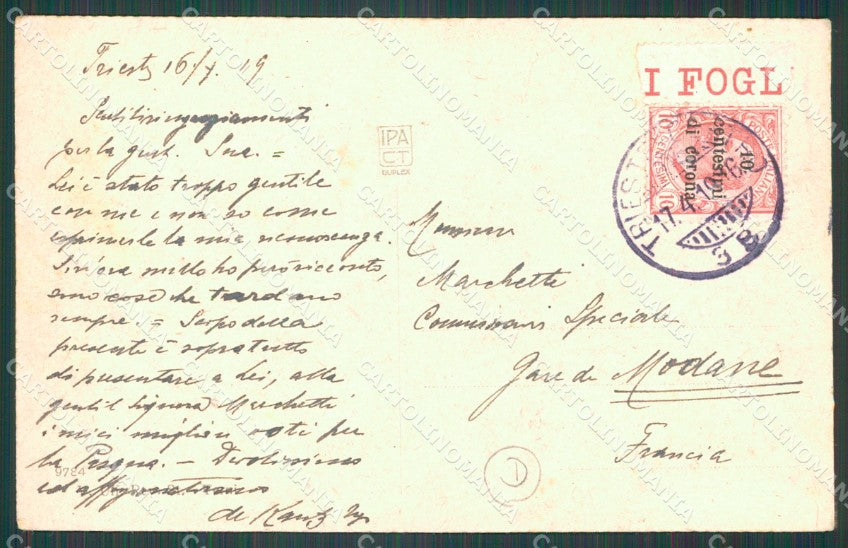 Trieste 16/4 19
Sentiti ringraziamenti
per la gent. Sua. =
Lei è stato troppo gentile
con me e non so come
esprimerle la mia riconoscenza.
Sin'ora nulla ho però ricevuto,
sono cose che tardano
sempre. = Scopo della
presente è sopratutto
di presentare a Lei, alla
gentil Signora Marchetti
i miei migliori voti per
la Pasqua. – Devotissimo
ed affezionatissimo
de
9784
IPA
CT
DUPLEX
I FOGL
POSTE ITALIANE
10 CENTESIMI 10
10
centesimi
di corona
TRIESTE
17.4.19
3
Monsieur
Marchetti
Commissaire Speciale
Gare de Modane
Francia
D
CARTOLINOMANIA